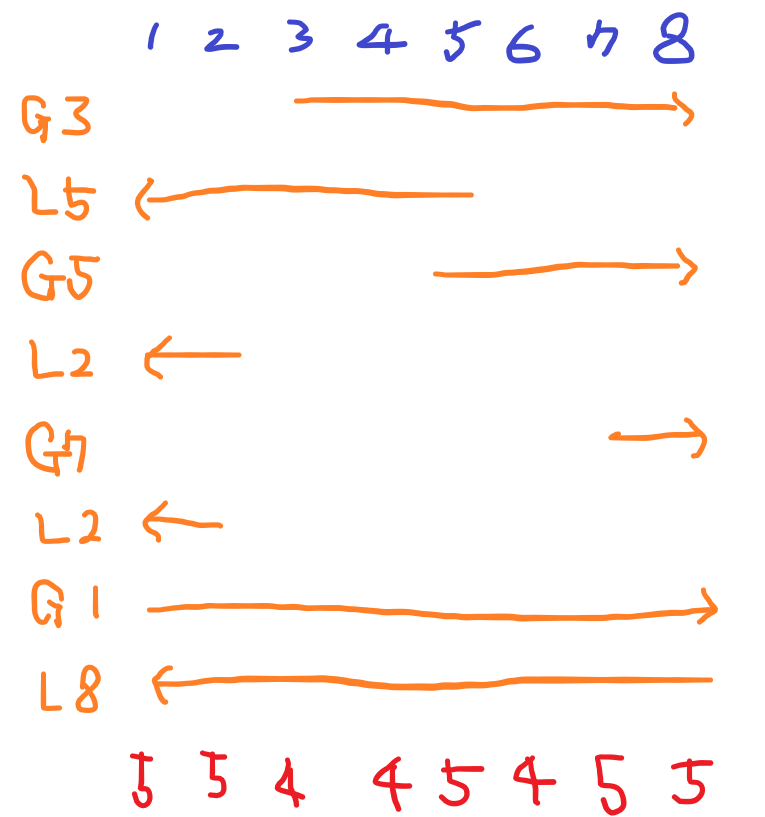 1 2 3 4 5 6 7 8
G3
L5
G5
L2
G7
L2
G1
L8
5 5 4 4 5 4 5 5